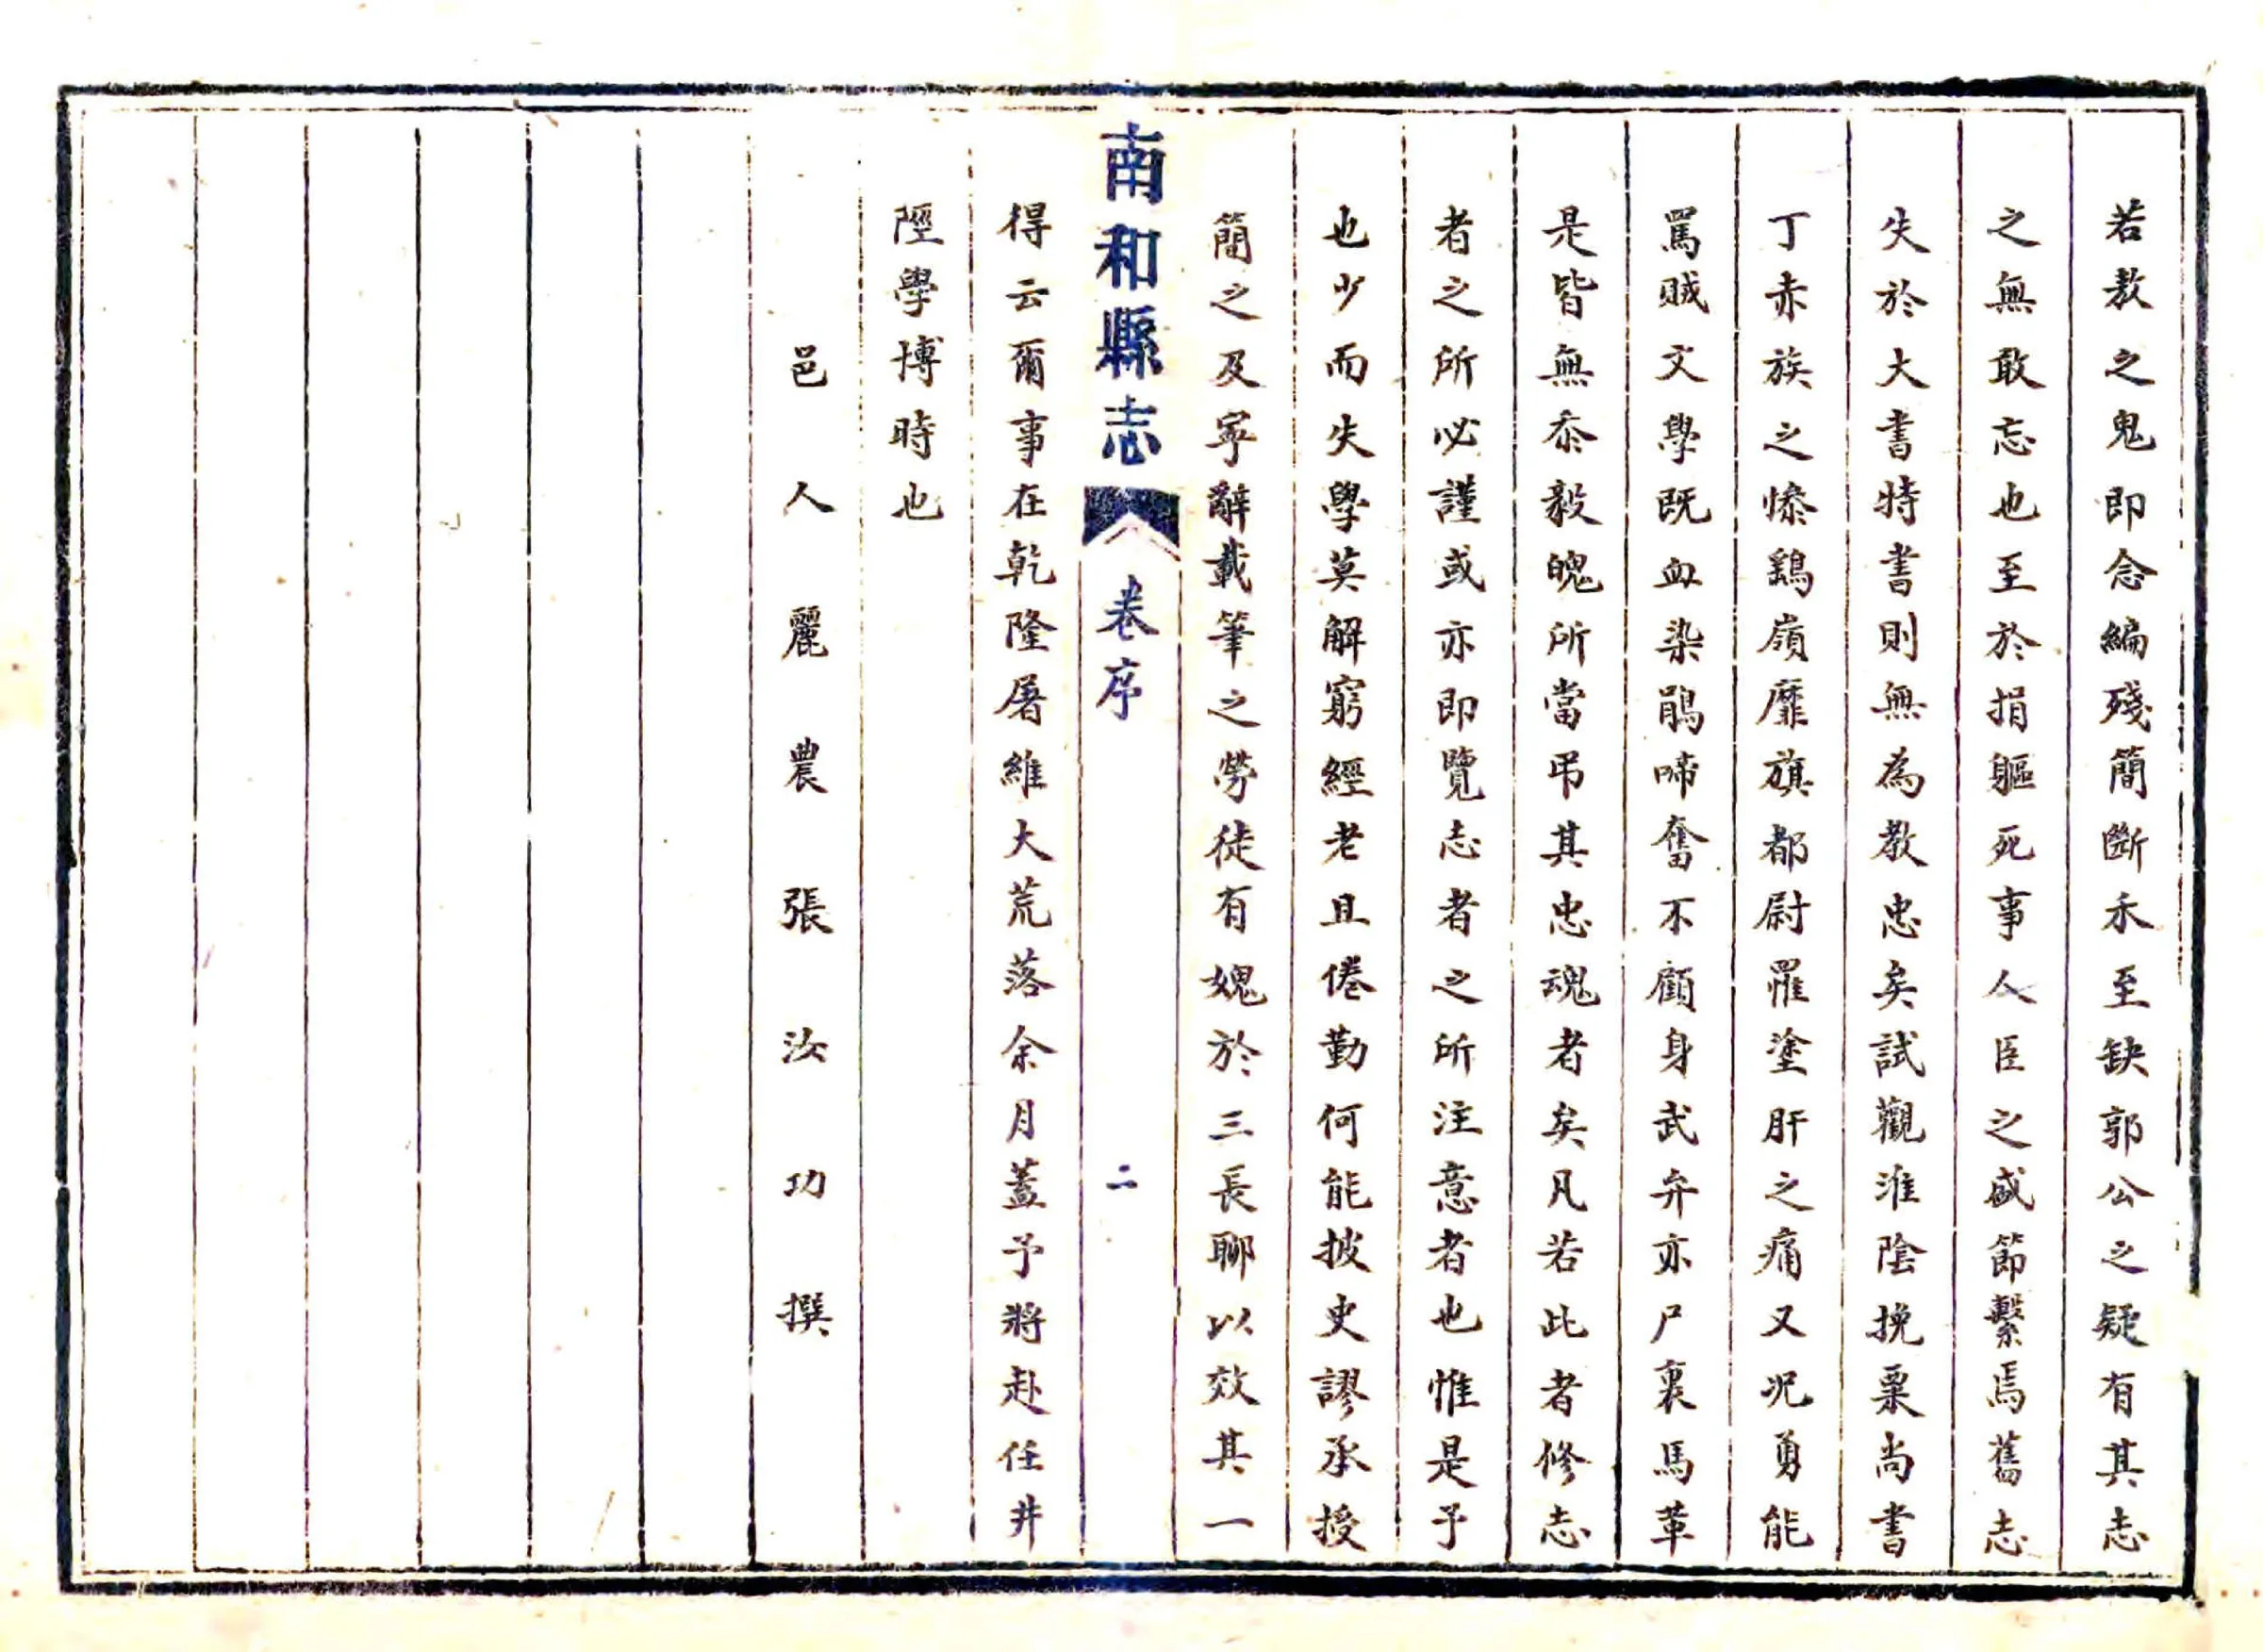 若敖之鬼即念編殘簡斷禾至缺郭公之疑有其志
之無敢忘也至於捐軀死事人臣之盛節繫焉舊志
失於大書特書則無為教忠矣試觀淮陰挽粟尚書
丁赤族之慘鷄嶺靡旗都尉罹塗肝之痛又況勇能
罵賊文學既血染鵑啼奮不顧身武弁亦尸裹馬革
是皆無忝毅魄所當弔其忠魂者矣凡若此者修志
者之所必謹或亦即覽志者之所注意者也惟是予
也少而失學莫解窮經老且倦勤何能披史謬承授
簡之及寧辭載筆之勞徒有媿於三長聊以效其一
南和縣志 卷序 二
得云爾事在乾隆屠維大荒落余月蓋予將赴任井
陘學博時也
邑人麗農張汝功撰